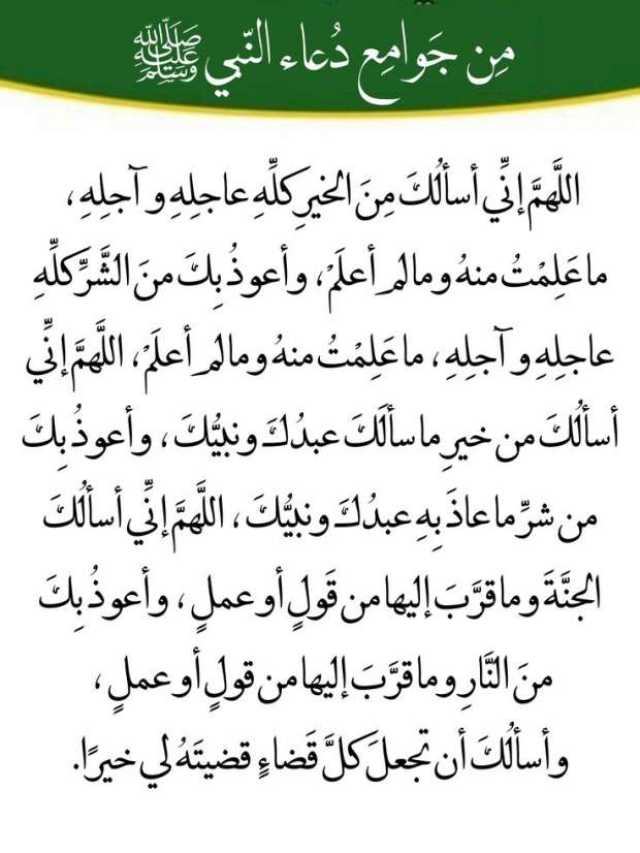 مِن جَوامِع دُعاء النّبي ﷺ
اللَّهمَّ إنِّي أسألُكَ مِنَ الخيرِ كلِّهِ عاجلِهِ و آجلِهِ ،
ما عَلِمْتُ منهُ وما لم أعلَمْ، وأعوذُ بِكَ منَ الشَّرِّ كلِّهِ
عاجلِهِ و آجلِهِ ، ما عَلِمْتُ منهُ وما لم أعلَمْ، اللَّهمَّ إنِّي
أسألُكَ من خيرِ ما سألَكَ عبدُكَ ونبيُّكَ ، وأعوذُ بِكَ
من شرِّ ما عاذَ بِهِ عبدُكَ ونبيُّكَ ، اللَّهمَّ إنِّي أسألُكَ
الجنَّةَ وما قرَّبَ إليها من قَولٍ أو عملٍ ، وأعوذُ بِكَ
منَ النَّارِ وما قرَّبَ إليها من قولٍ أو عملٍ ،
وأسألُكَ أن تجعلَ كلَّ قَضاءٍ قضيتَهُ لي خيرًا.